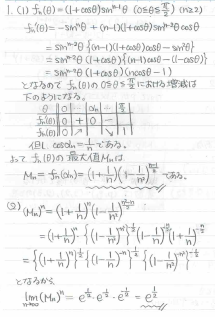 1. (1) fn(θ) = (1+cosθ)sin^{n-1}θ (0≤θ≤π/2) (n≥2)
fn'(θ) = -sin^nθ + (n-1)(1+cosθ)sin^{n-2}θ cosθ
= sin^{n-2}θ {(n-1)(1+cosθ)cosθ - sin²θ}
= sin^{n-2}θ (1+cosθ){(n-1)cosθ - (1-cosθ)}
= sin^{n-2}θ (1+cosθ)(ncosθ-1)
となるので fn(θ) の 0≤θ≤π/2 における増減は
下のようになる。
θ | 0 | … | αn | … | π/2
fn'(θ) | + | 0 | -
fn(θ) | ↗ | | ↘
但し cosαn = 1/n である。
よって fn(θ) の最大値Mnは
Mn = fn(αn) = (1+1/n)(1-1/n²)^{(n-1)/2} である。
(2) (Mn)^n = (1+1/n)^n (1-1/n²)^{n(n-1)/2}
= (1+1/n)^n
となるから
lim_{n→∞} (Mn)^n = = e^{1/2}